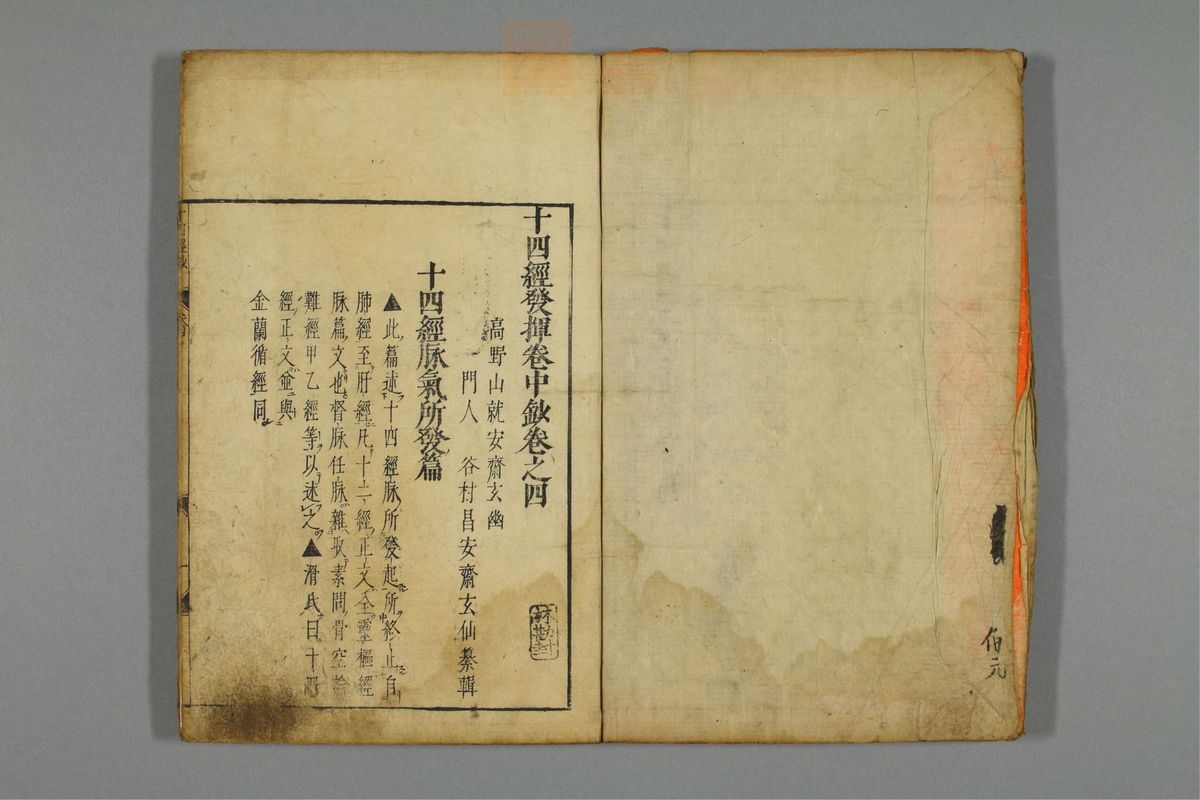 伯元
十四經發揮卷中鈔卷之四
高野山就安齋玄幽
門人 谷村昌安齋玄仙纂輯
十四經脉氣所發篇
▲此篇述十四經脉所發起所終止自
肺經至肝經凡十二經正文全靈樞經
脉篇文也督脉任脉雜取素問骨空論
難經甲乙經等以述之▲滑氏曰十四
經正文並與
金蘭循經同